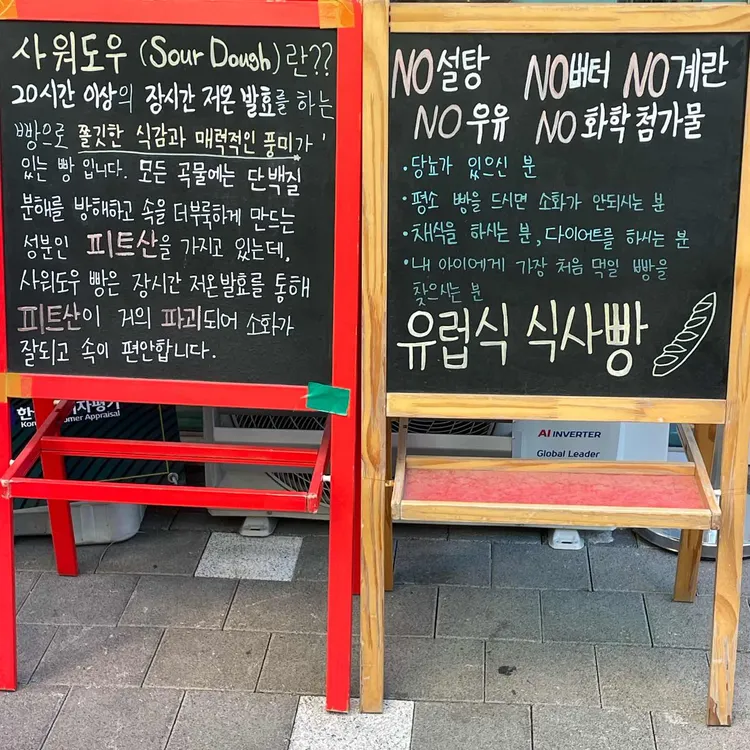 사워도우 (Sour Dough)란??
20시간 이상의 장시간 저온 발효를 하는
빵으로 쫄깃한 식감과 매력적인 풍미가
있는 빵 입니다. 모든 곡물에는 단백질
분해를 방해하고 속을 더부룩하게 만드는
성분인 피트산을 가지고 있는데,
사워도우 빵은 장시간 저온발효를 통해
피트산이 거의 파괴되어 소화가
잘되고 속이 편안합니다.
NO설탕 NO버터 NO계란
NO우유 NO화학첨가물
·당뇨가 있으신 분
·평소 빵을 드시면 소화가 안되시는 분
·채식을 하시는 분, 다이어트를 하시는 분
·내 아이에게 가장 처음 먹일 빵을
찾으시는 분
유럽식 식사빵
Appraisal
AI INVERTER
Global Leader